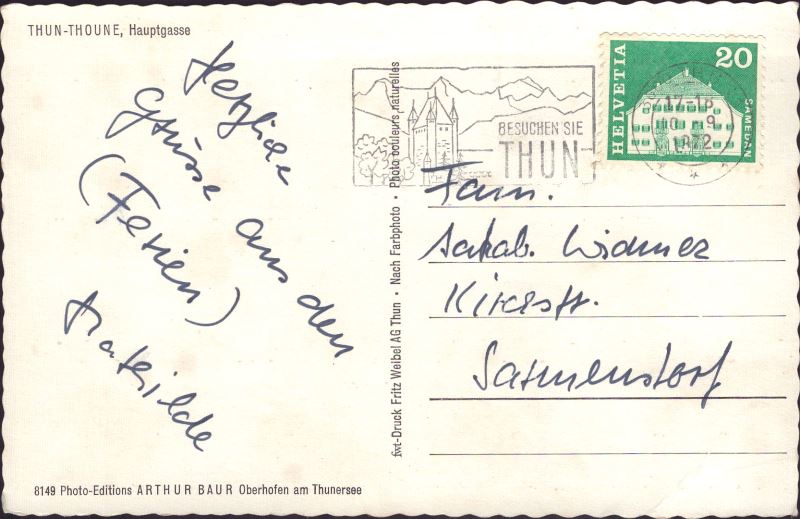 THUN-THOUNE, Hauptgasse
Herzliche
Grüsse aus den
(Ferien)
Mathilde
8149 Photo-Editions ARTHUR BAUR Oberhofen am Thunersee
fwt-Druck Fritz Weibel AG Thun • Nach Farbphoto • Photo couleurs naturelles
BESUCHEN SIE
THUN
HELVETIA
20
SAMEDAN
Fam.
Jakob Widmer
Kirchstr.
Sarmenstorf